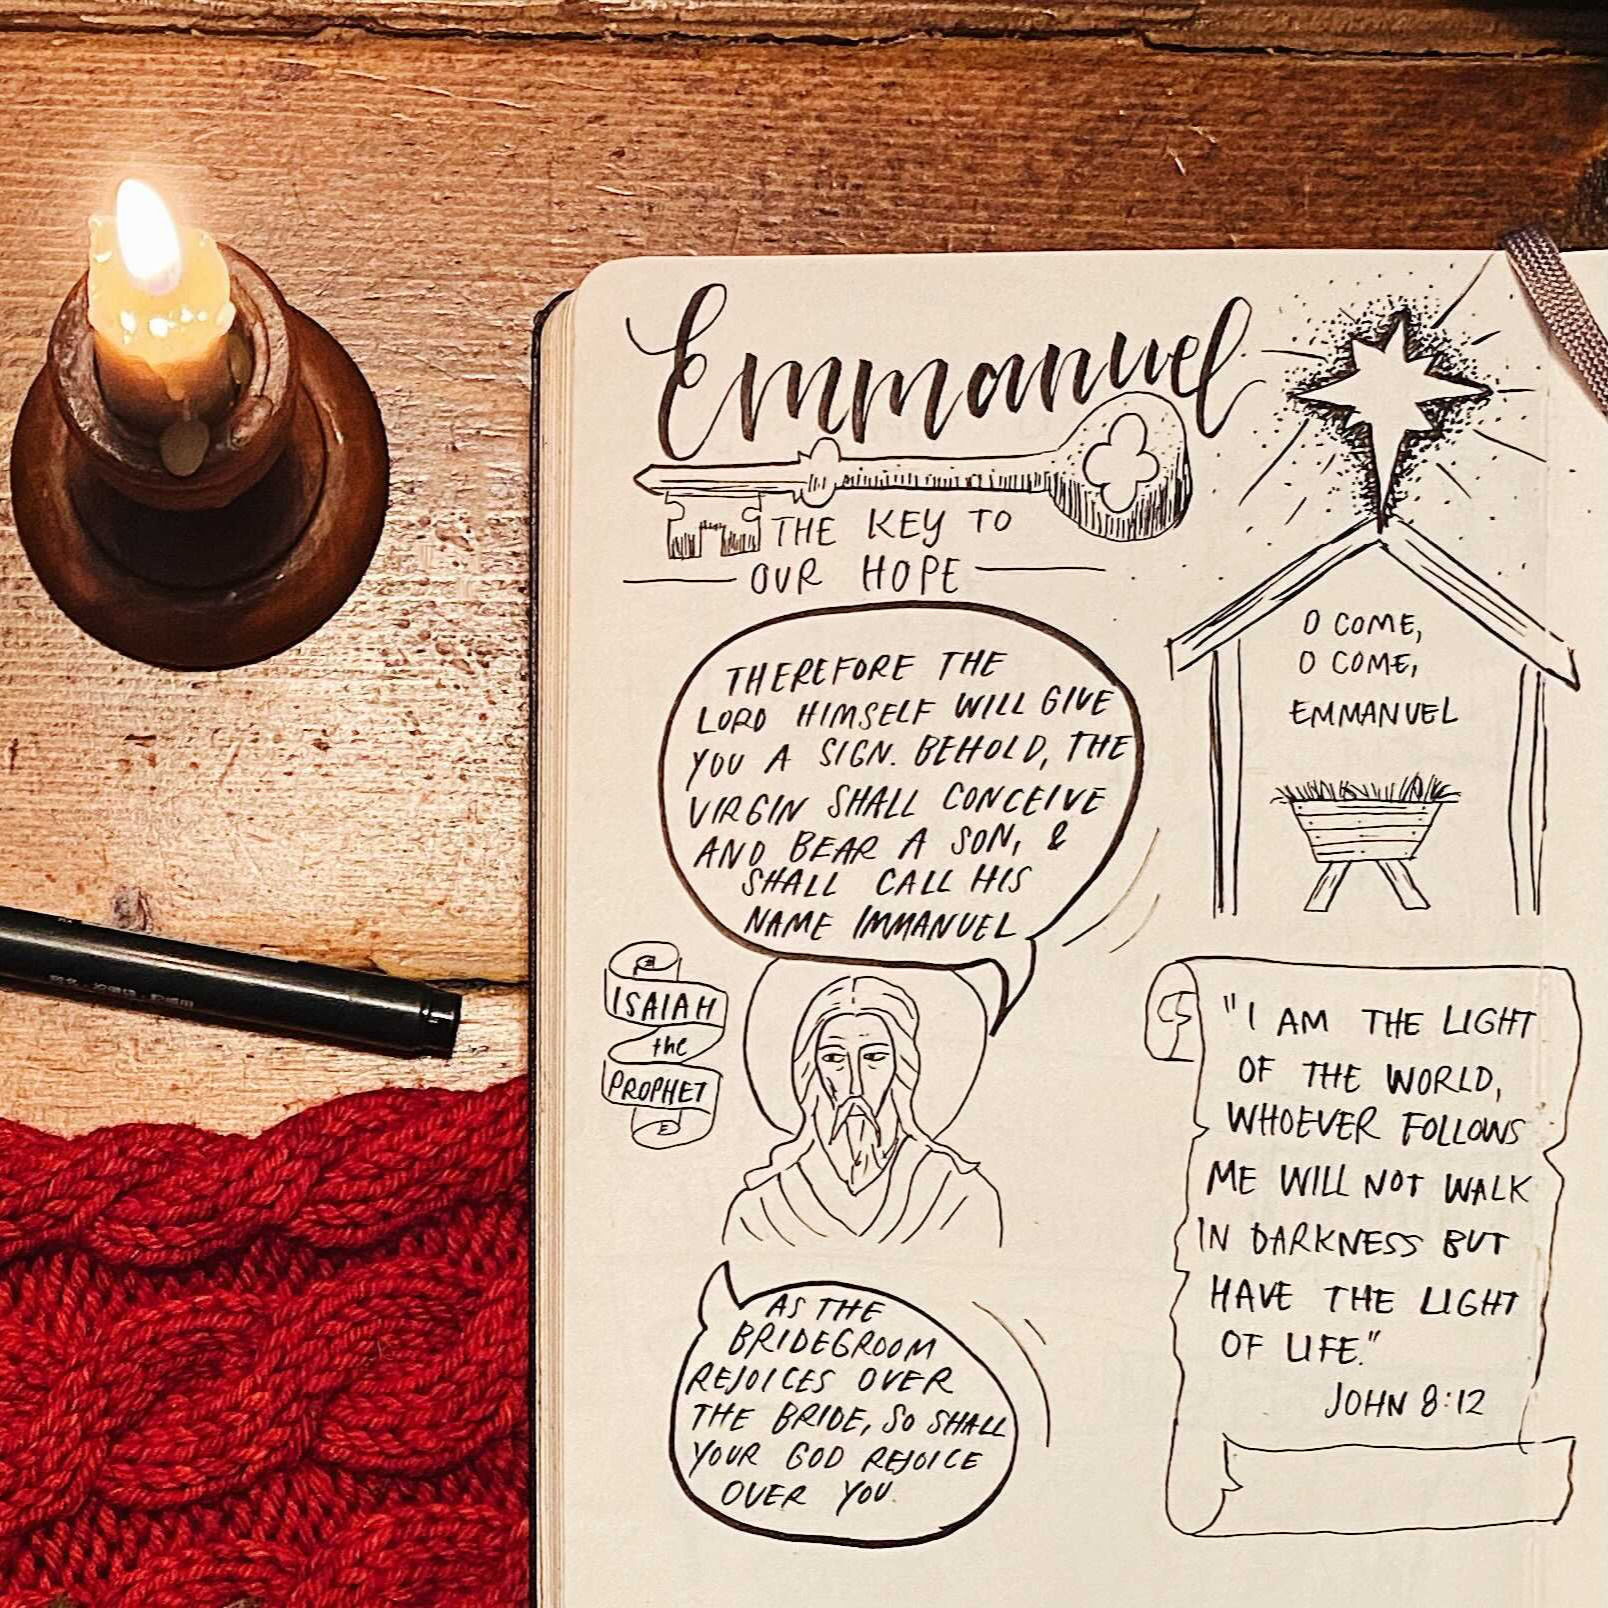 Emmanuel
THE KEY TO
OUR HOPE
THEREFORE THE
LORD HIMSELF WILL GIVE
YOU A SIGN. BEHOLD, THE
VIRGIN SHALL CONCEIVE
AND BEAR A SON, &
SHALL CALL HIS
NAME IMMANUEL
ISAIAH
the
PROPHET
AS THE
BRIDEGROOM
REJOICES OVER
THE BRIDE, SO SHALL
YOUR GOD REJOICE
OVER YOU.
O COME,
O COME,
EMMANUEL
"I AM THE LIGHT
OF THE WORLD,
WHOEVER FOLLOWS
ME WILL NOT WALK
IN DARKNESS BUT
HAVE THE LIGHT
OF LIFE."
JOHN 8:12